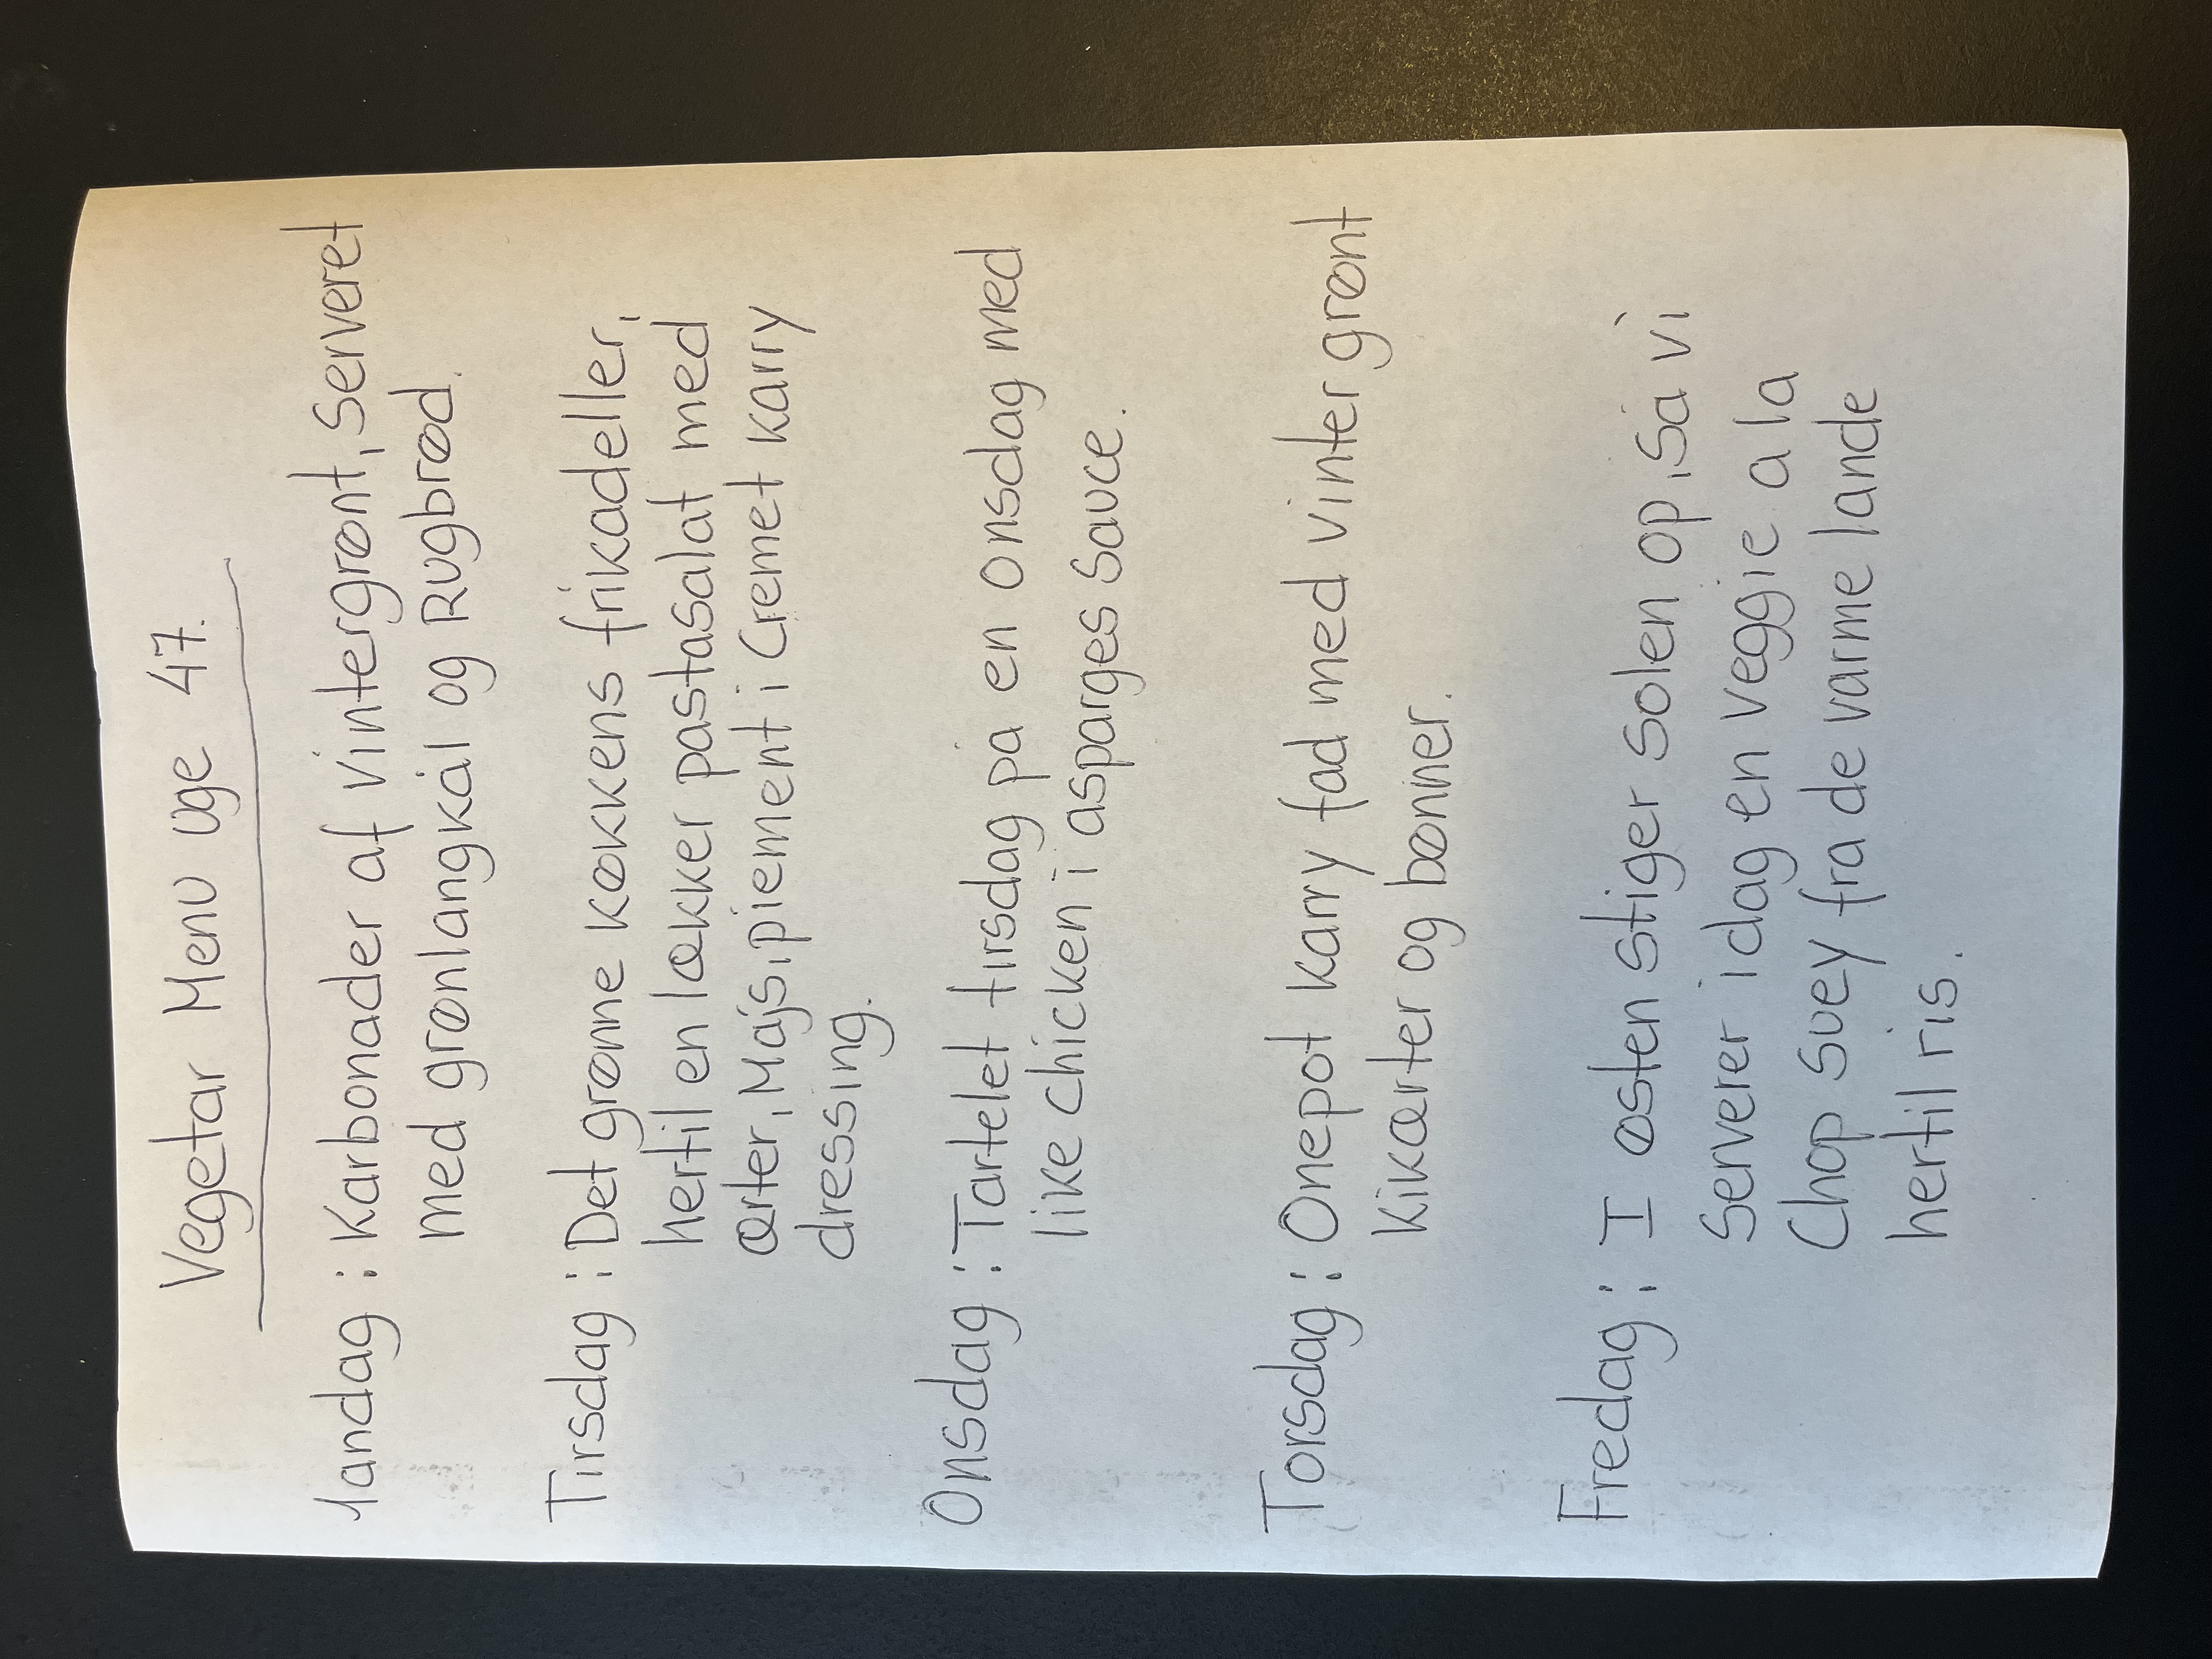 Vegetar Menu uge 47.
Mandag : Karbonader af vintergrønt, Serveret
med grønlangkål og Rugbrød.
Tirsdag : Det grønne køkkens frikadeller,
hertil en lækker pastasalat med
ærter, Majs, piement i Cremet karry
dressing.
Onsdag : Tartelet tirsdag på en onsdag med
like chicken i asparges Sauce.
Torsdag : Onepot karry fad med vinter grønt
Kikærter og bønner.
Fredag : I østen stiger solen op, så vi
Serverer idag en veggie a la
Chop Suey fra de varme lande
hertil ris.